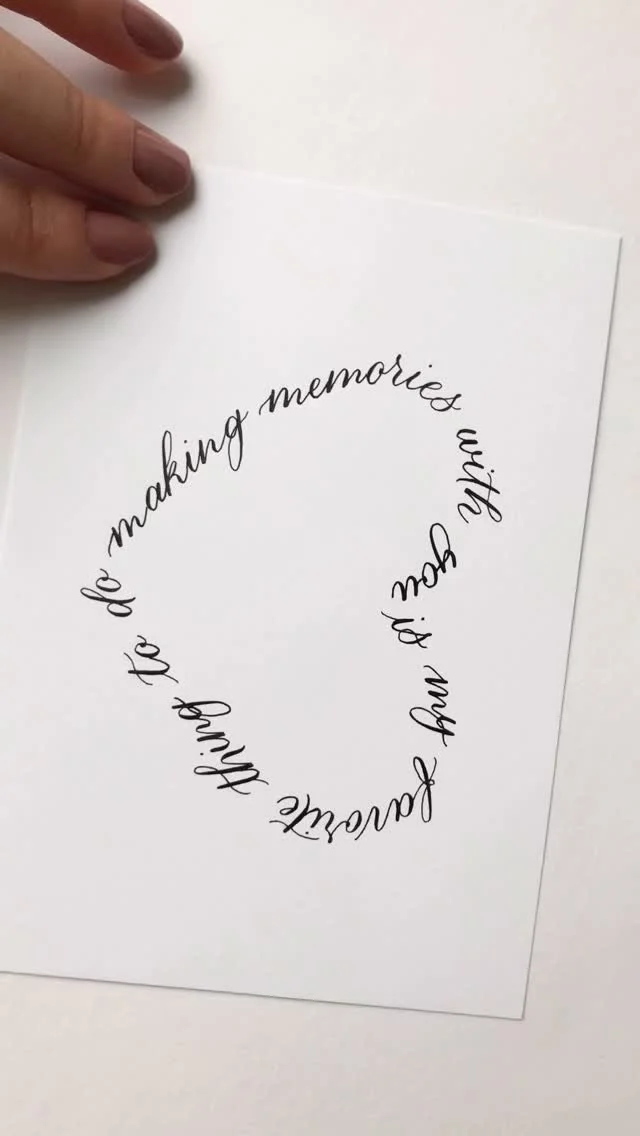 making memories with you is my favorite thing to do